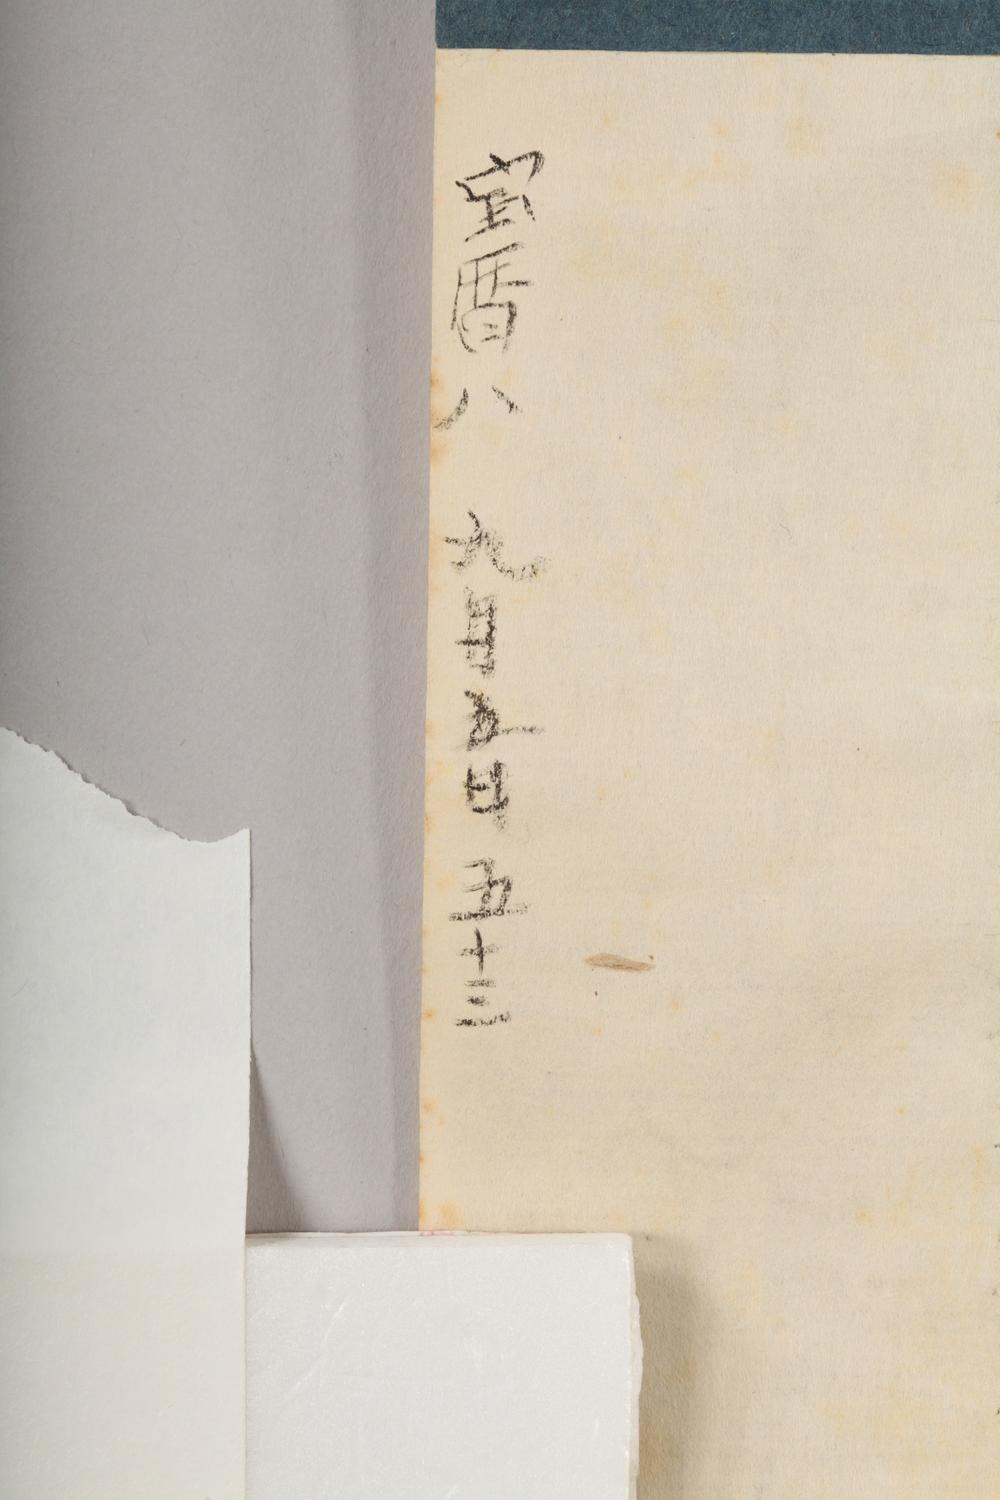 宝暦八 九月五日 五十三